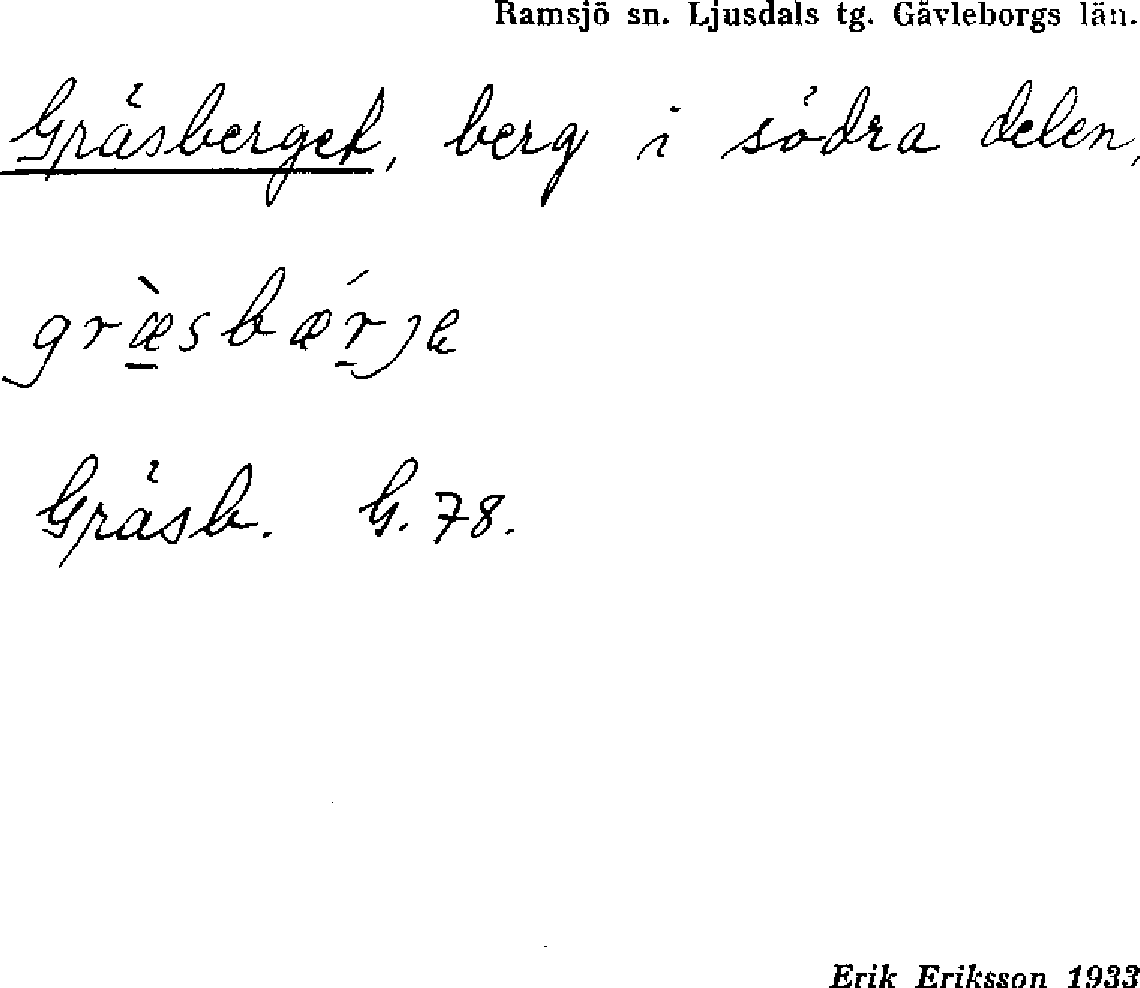 Ramsjö sn. Ljusdals tg. Gävleborgs län.
Gräsberget, berg i södra delen,
græ̠̀sbæŕ̠je
Gräsb. G. 78.
Erik Eriksson 1933